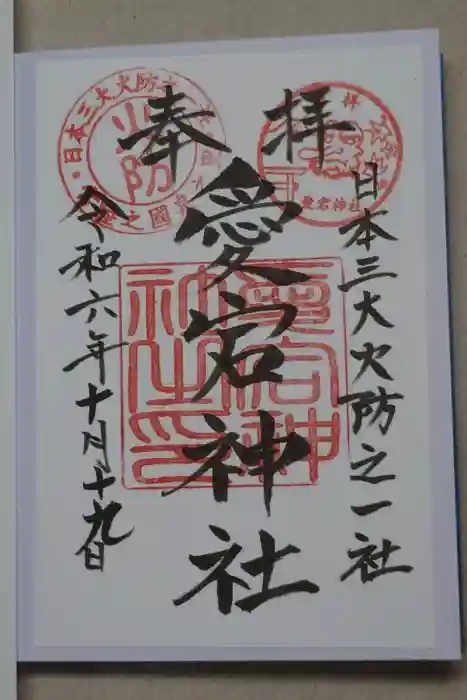 奉拝
日本三大火防之一社
愛宕神社
令和六年十月十九日
愛宕神社之印
愛宕神社
火防
日本三大火防之